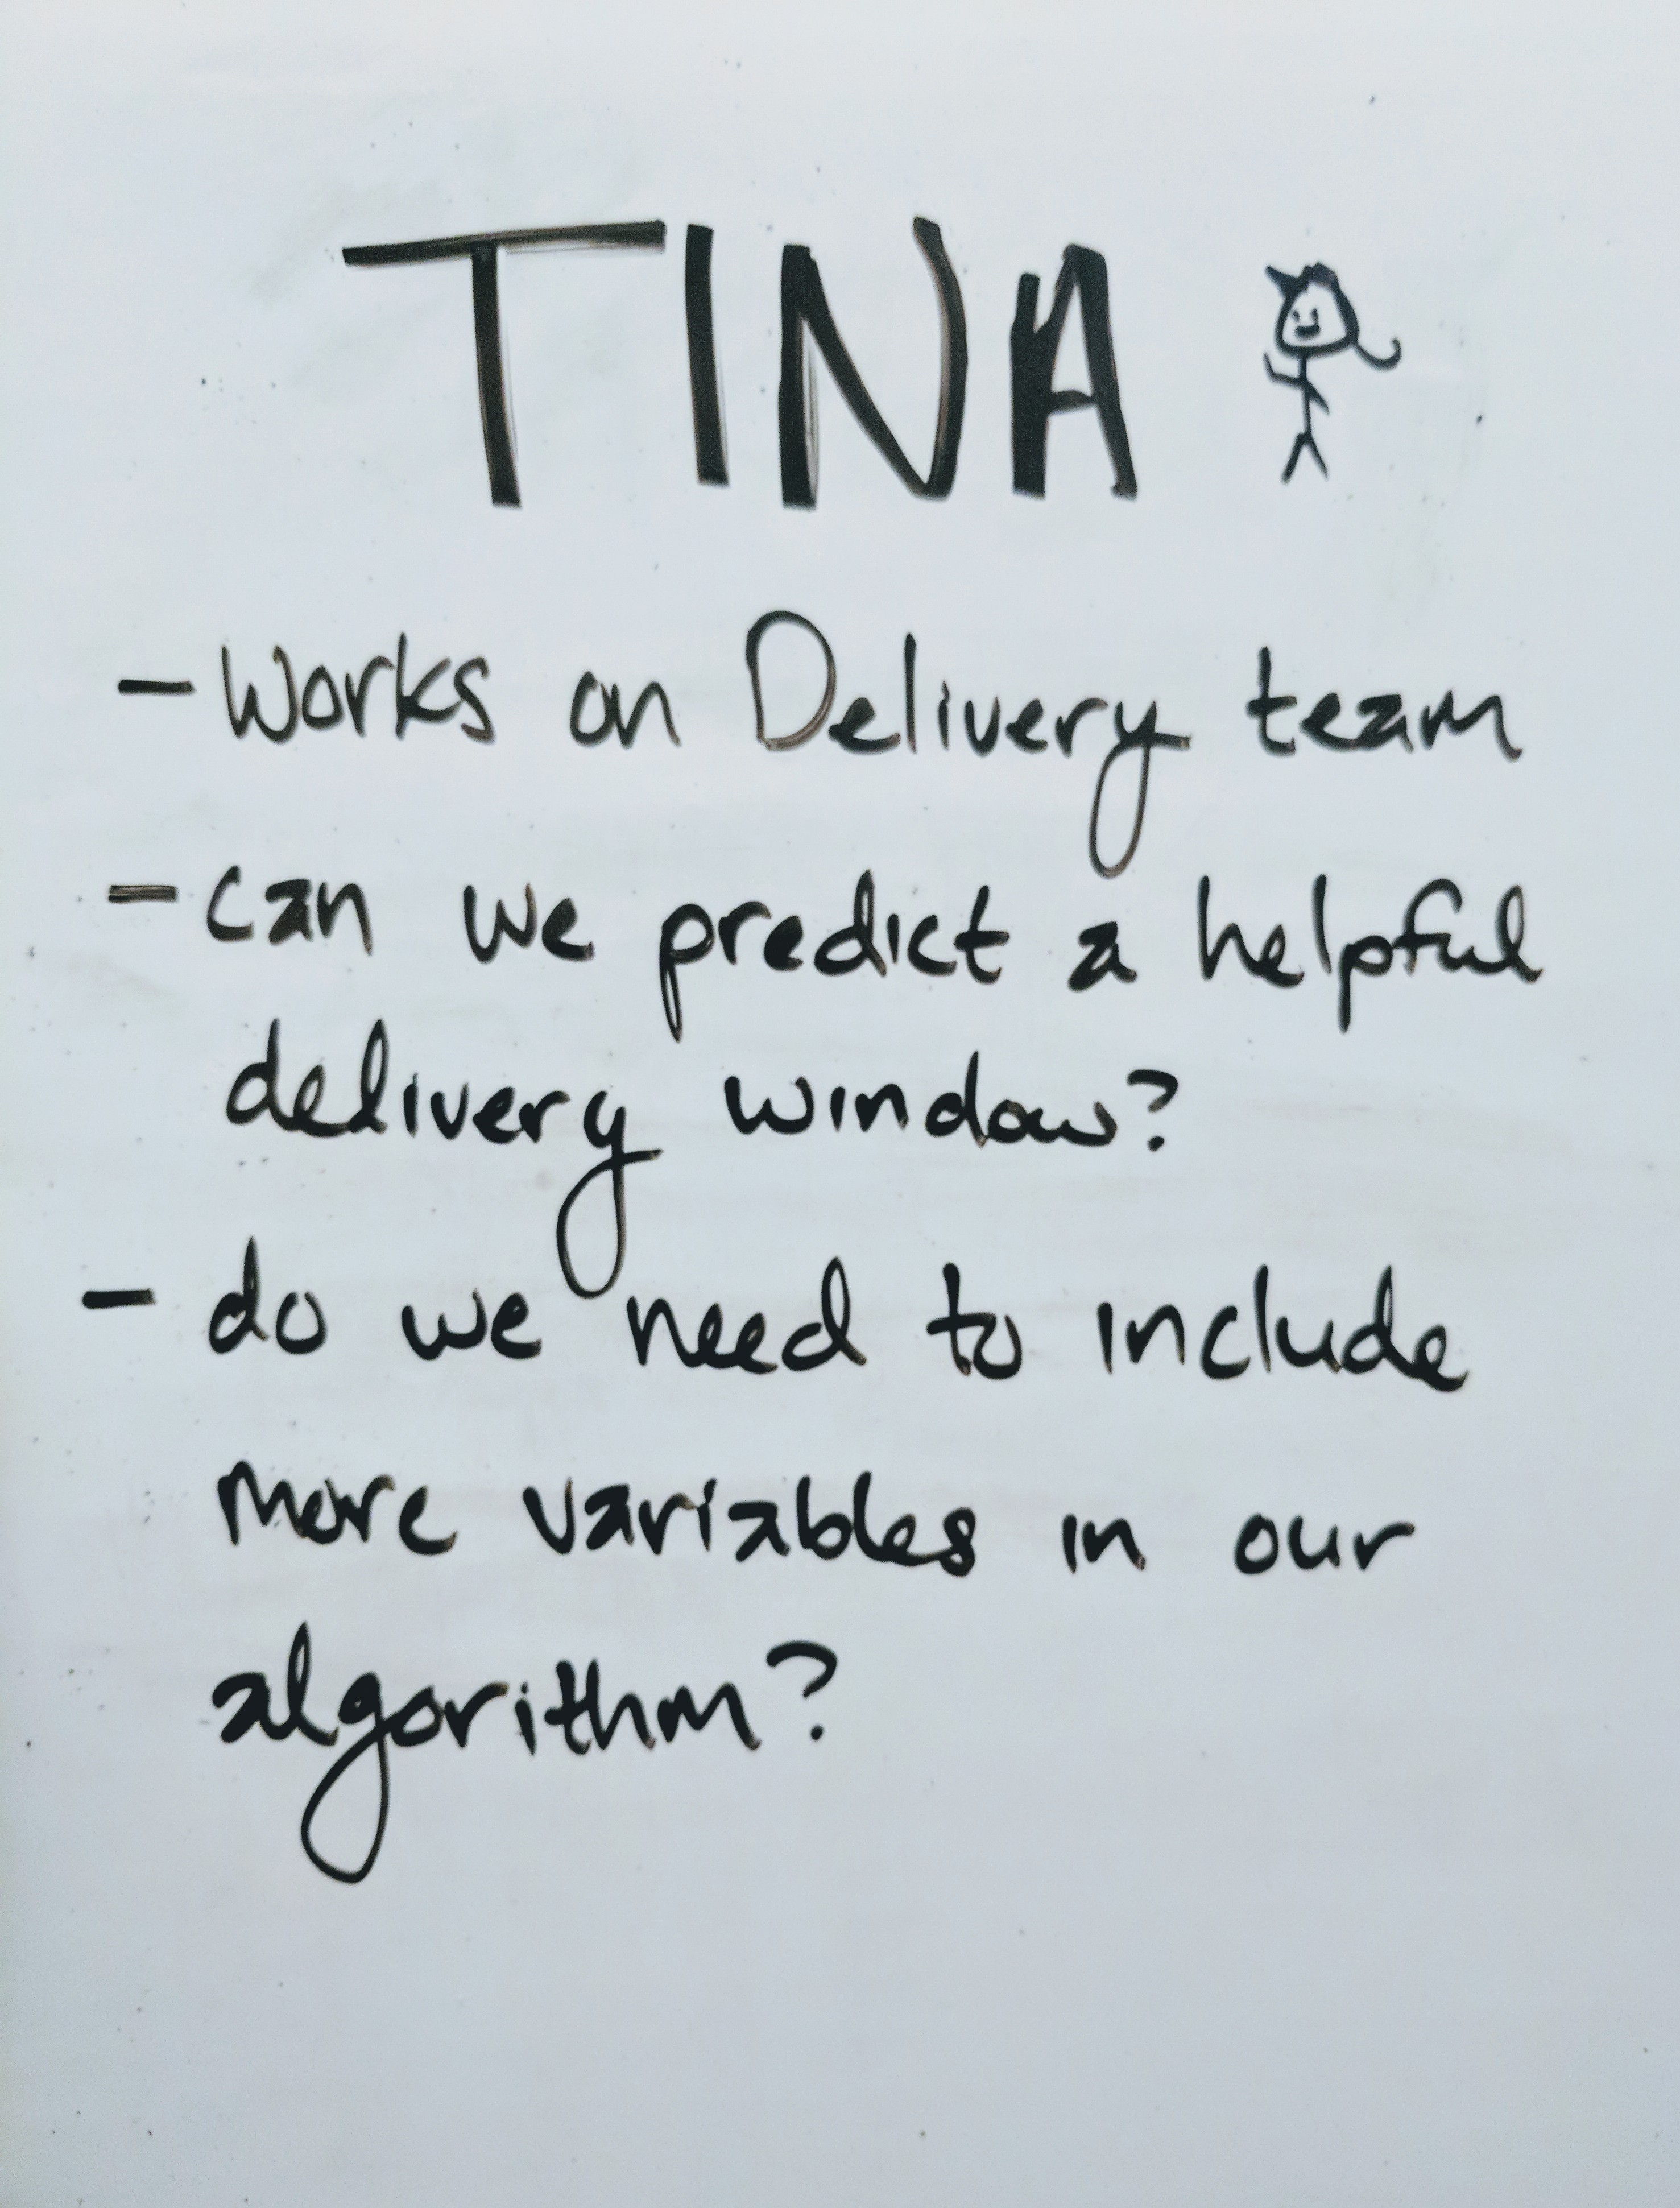 TINA
- Works on Delivery team
- can we predict a helpful
delivery window?
- do we need to include
more variables in our
algorithm?